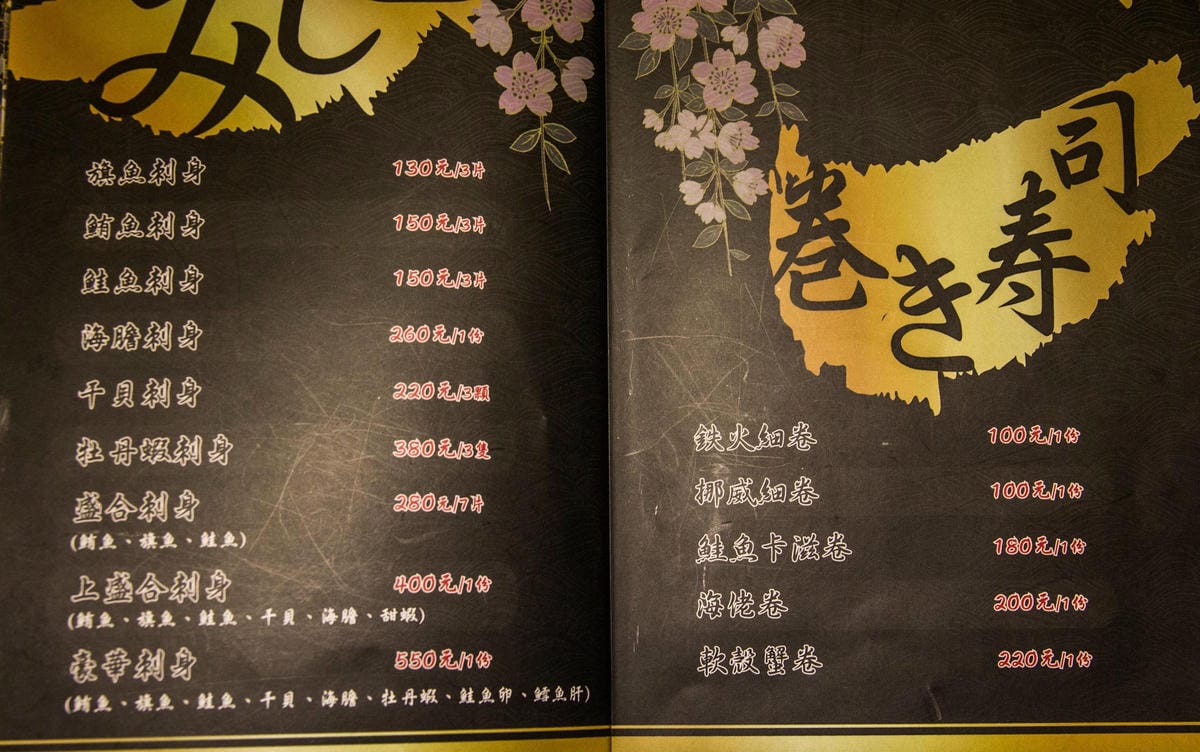 み
旗魚刺身 130元/3片
鮪魚刺身 150元/3片
鮭魚刺身 150元/3片
海膽刺身 260元/1份
干貝刺身 220元/3顆
牡丹蝦刺身 380元/3隻
盛合刺身 280元/7片
(鮪魚、旗魚、鮭魚)
上盛合刺身 400元/1份
(鮪魚、旗魚、鮭魚、干貝、海膽、甜蝦)
豪華刺身 550元/1份
(鮪魚、旗魚、鮭魚、干貝、海膽、牡丹蝦、鮭魚卵、鱈魚肝)
巻き寿司
鉄火細卷 100元/1份
挪威細卷 100元/1份
鮭魚卡滋卷 180元/1份
海佬卷 200元/1份
軟殼蟹卷 220元/1份